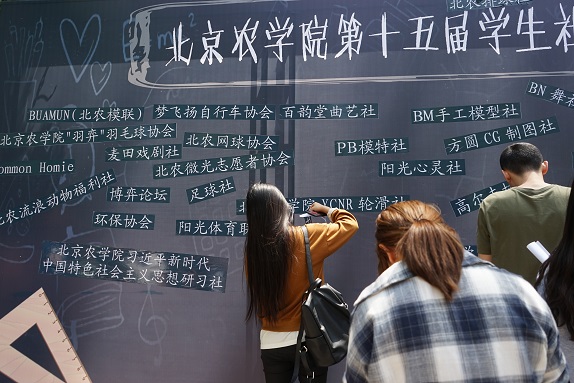 北农排球社
北京农学院第十五届学生社
BN舞社
BUAMUN(北农模联) 梦飞扬自行车协会 百韵堂曲艺社 BM手工模型社
北京农学院"羽弈"羽毛球协会 北农网球协会 PB模特社 方圆CG制图社
麦田戏剧社
Common Homie 北农微光志愿者协会 阳光心灵社
北农流浪动物福利社 博弈论坛 足球社
学院YCNR 轮滑社 高尔
环保协会 阳光体育联
北京农学院习近平新时代
中国特色社会主义思想研习社